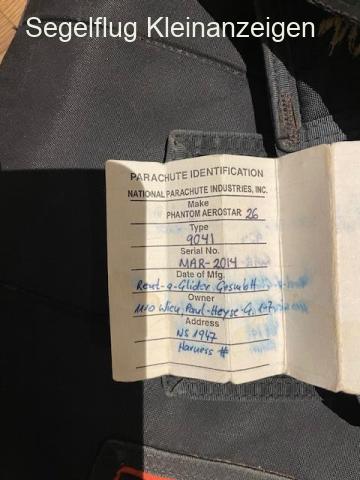 Segelflug Kleinanzeigen
PARACHUTE IDENTIFICATION
NATIONAL PARACHUTE INDUSTRIES, INC.
Make
PHANTOM AEROSTAR 26
Type
9041
Serial No.
MAR-2014
Date of Mfg.
Rent-a-Glider GesmbH
Owner
1110 Wien, Paul-Heyse-G. 1-7
Address
NS 1947
Harness #